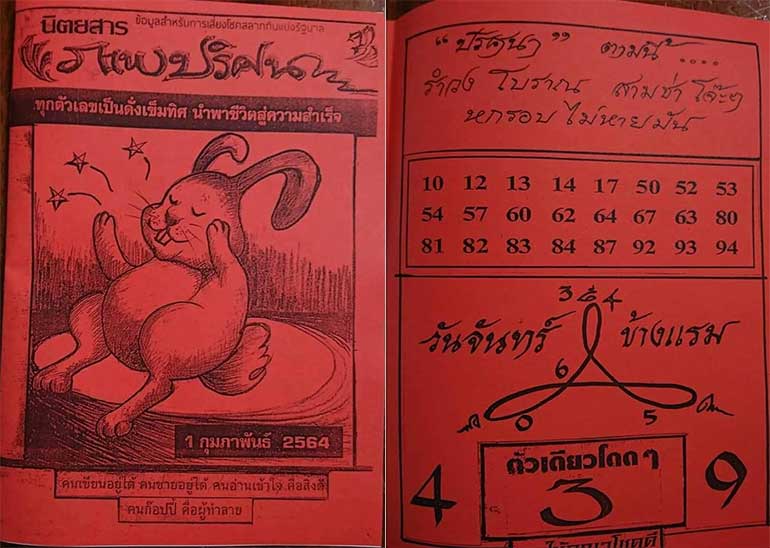 นิตยสาร
ข้อมูลสำหรับการเสี่ยงโชคสลากกินแบ่งรัฐบาล
ภาพปริศนา
ทุกตัวเลขเป็นดั่งเข็มทิศ นำพาชีวิตสู่ความสำเร็จ
1 กุมภาพันธ์ 2564
คนเขียนอยู่ได้ คนขายอยู่ได้ คนอ่านเข้าใจ คือสิ่งดี
คนก๊อปปี้ คือผู้ทำลาย
“ ปริศนา ” ตามนี้ ....
รำวง โบราณ สามช่า โจ๊ะๆ
หกรอบ ไม่หายมัน
10 12 13 14 17 50 52 53
54 57 60 62 64 67 63 80
81 82 83 84 87 92 93 94
3 4
วันจันทร์ ข้างแรม
6
0 5
ตัวเดียวโดด ๆ
4 3 9